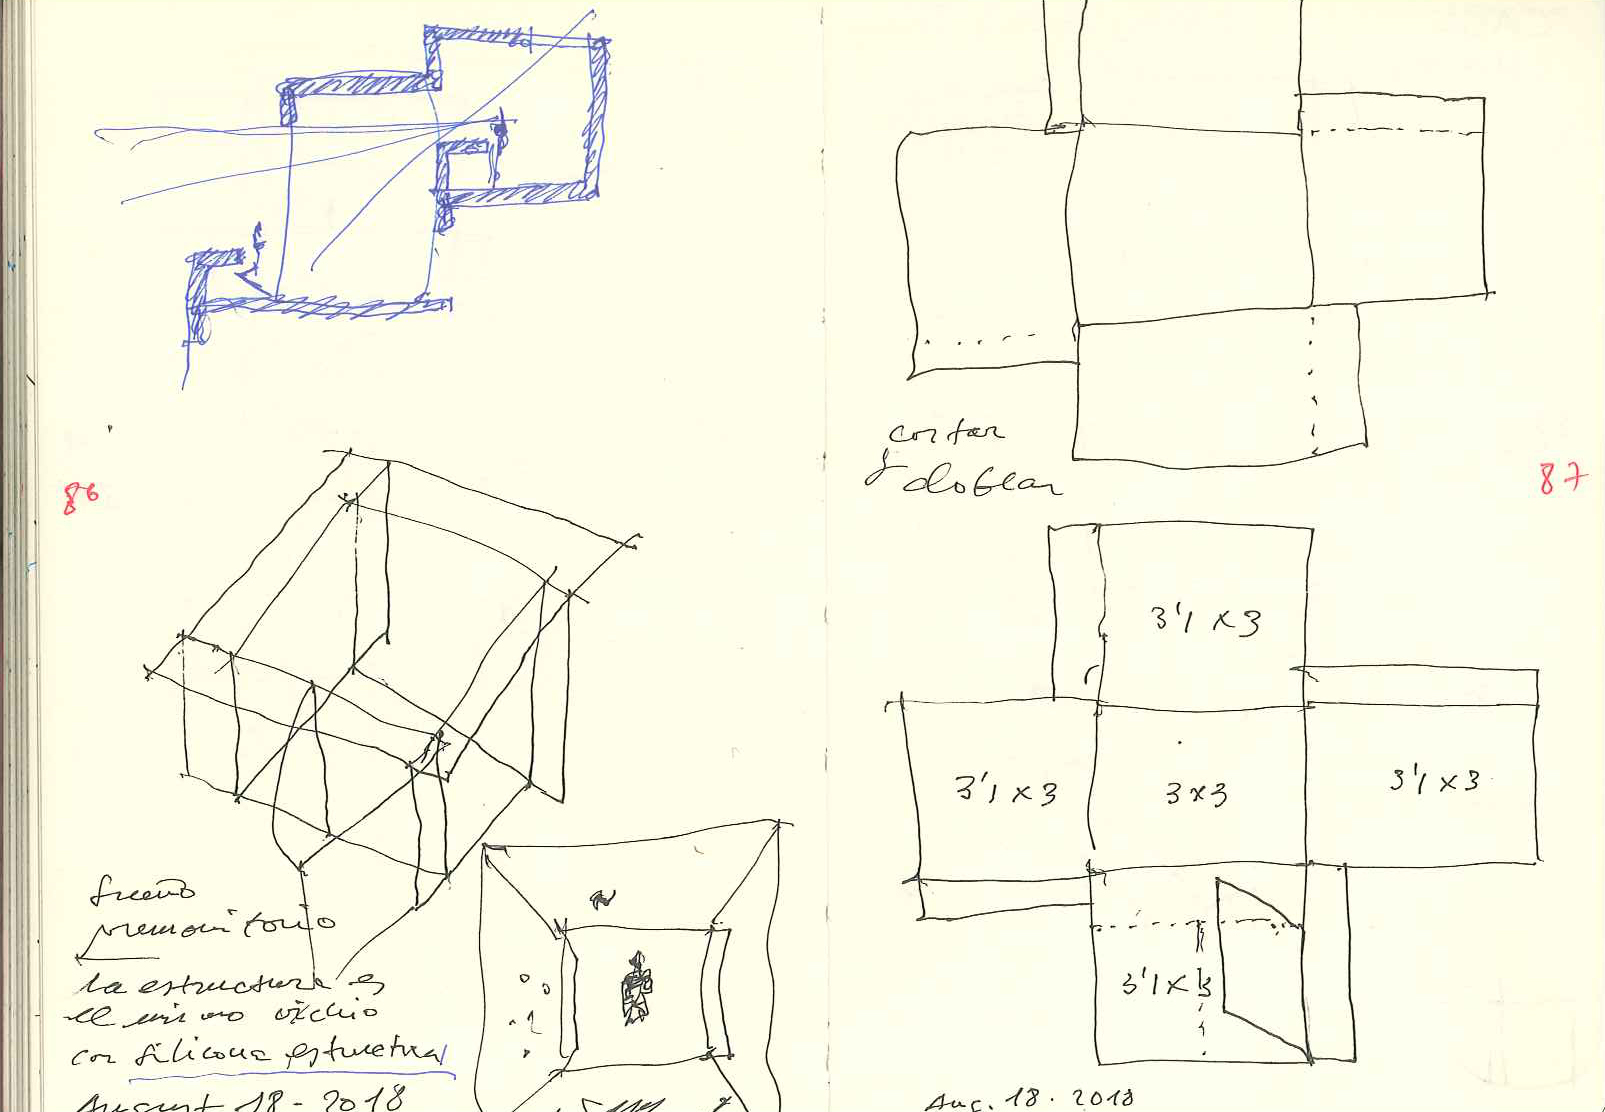 86
sueño
premonitorio
la estructura es
el mismo vidrio
con silicona estructural
August 18 - 2018
cortar
y doblar
87
3'1 x 3
3'1 x 3
3x3
3'1 x 3
3'1 x 3
Aug. 18. 2018